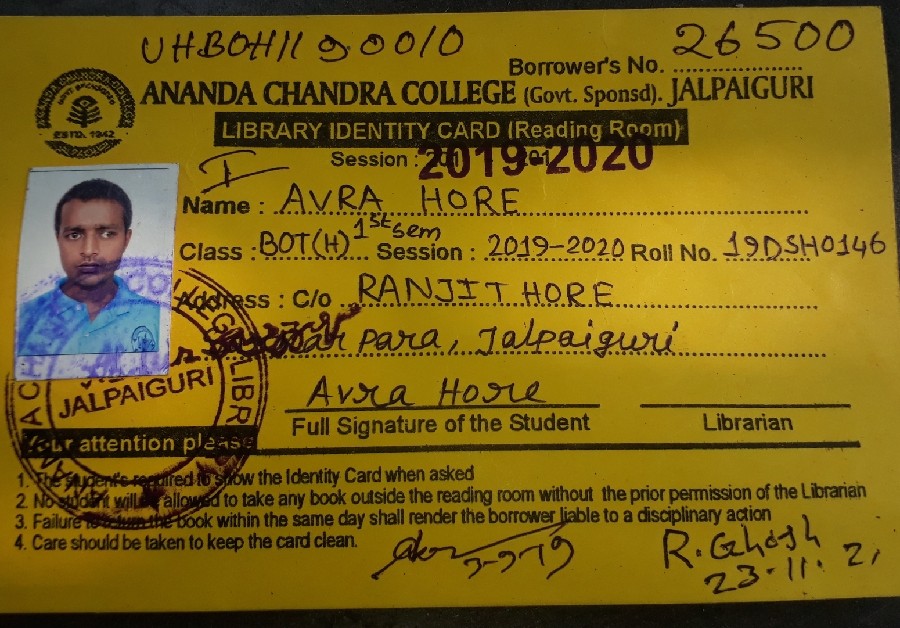 UHBOH1190010
26500
Borrower's No.
ANANDA CHANDRA COLLEGE (Govt. Sponsd). JALPAIGURI
ESTD. 1942
LIBRARY IDENTITY CARD (Reading Room)
Session : 2019-2020
I
Name : AVRA HORE
Class : BOT(H) 1st sem Session : 2019-2020 Roll No. 19DSH0146
Address : C/o RANJIT HORE
para, Jalpaiguri
JALPAIGURI
Avra Hore
Full Signature of the Student Librarian
Your attention please
1. The student's required to show the Identity Card when asked
2. No student will be allowed to take any book outside the reading room without the prior permission of the Librarian
3. Failure to return the book within the same day shall render the borrower liable to a disciplinary action
4. Care should be taken to keep the card clean.
R. Ghosh
23.11.21